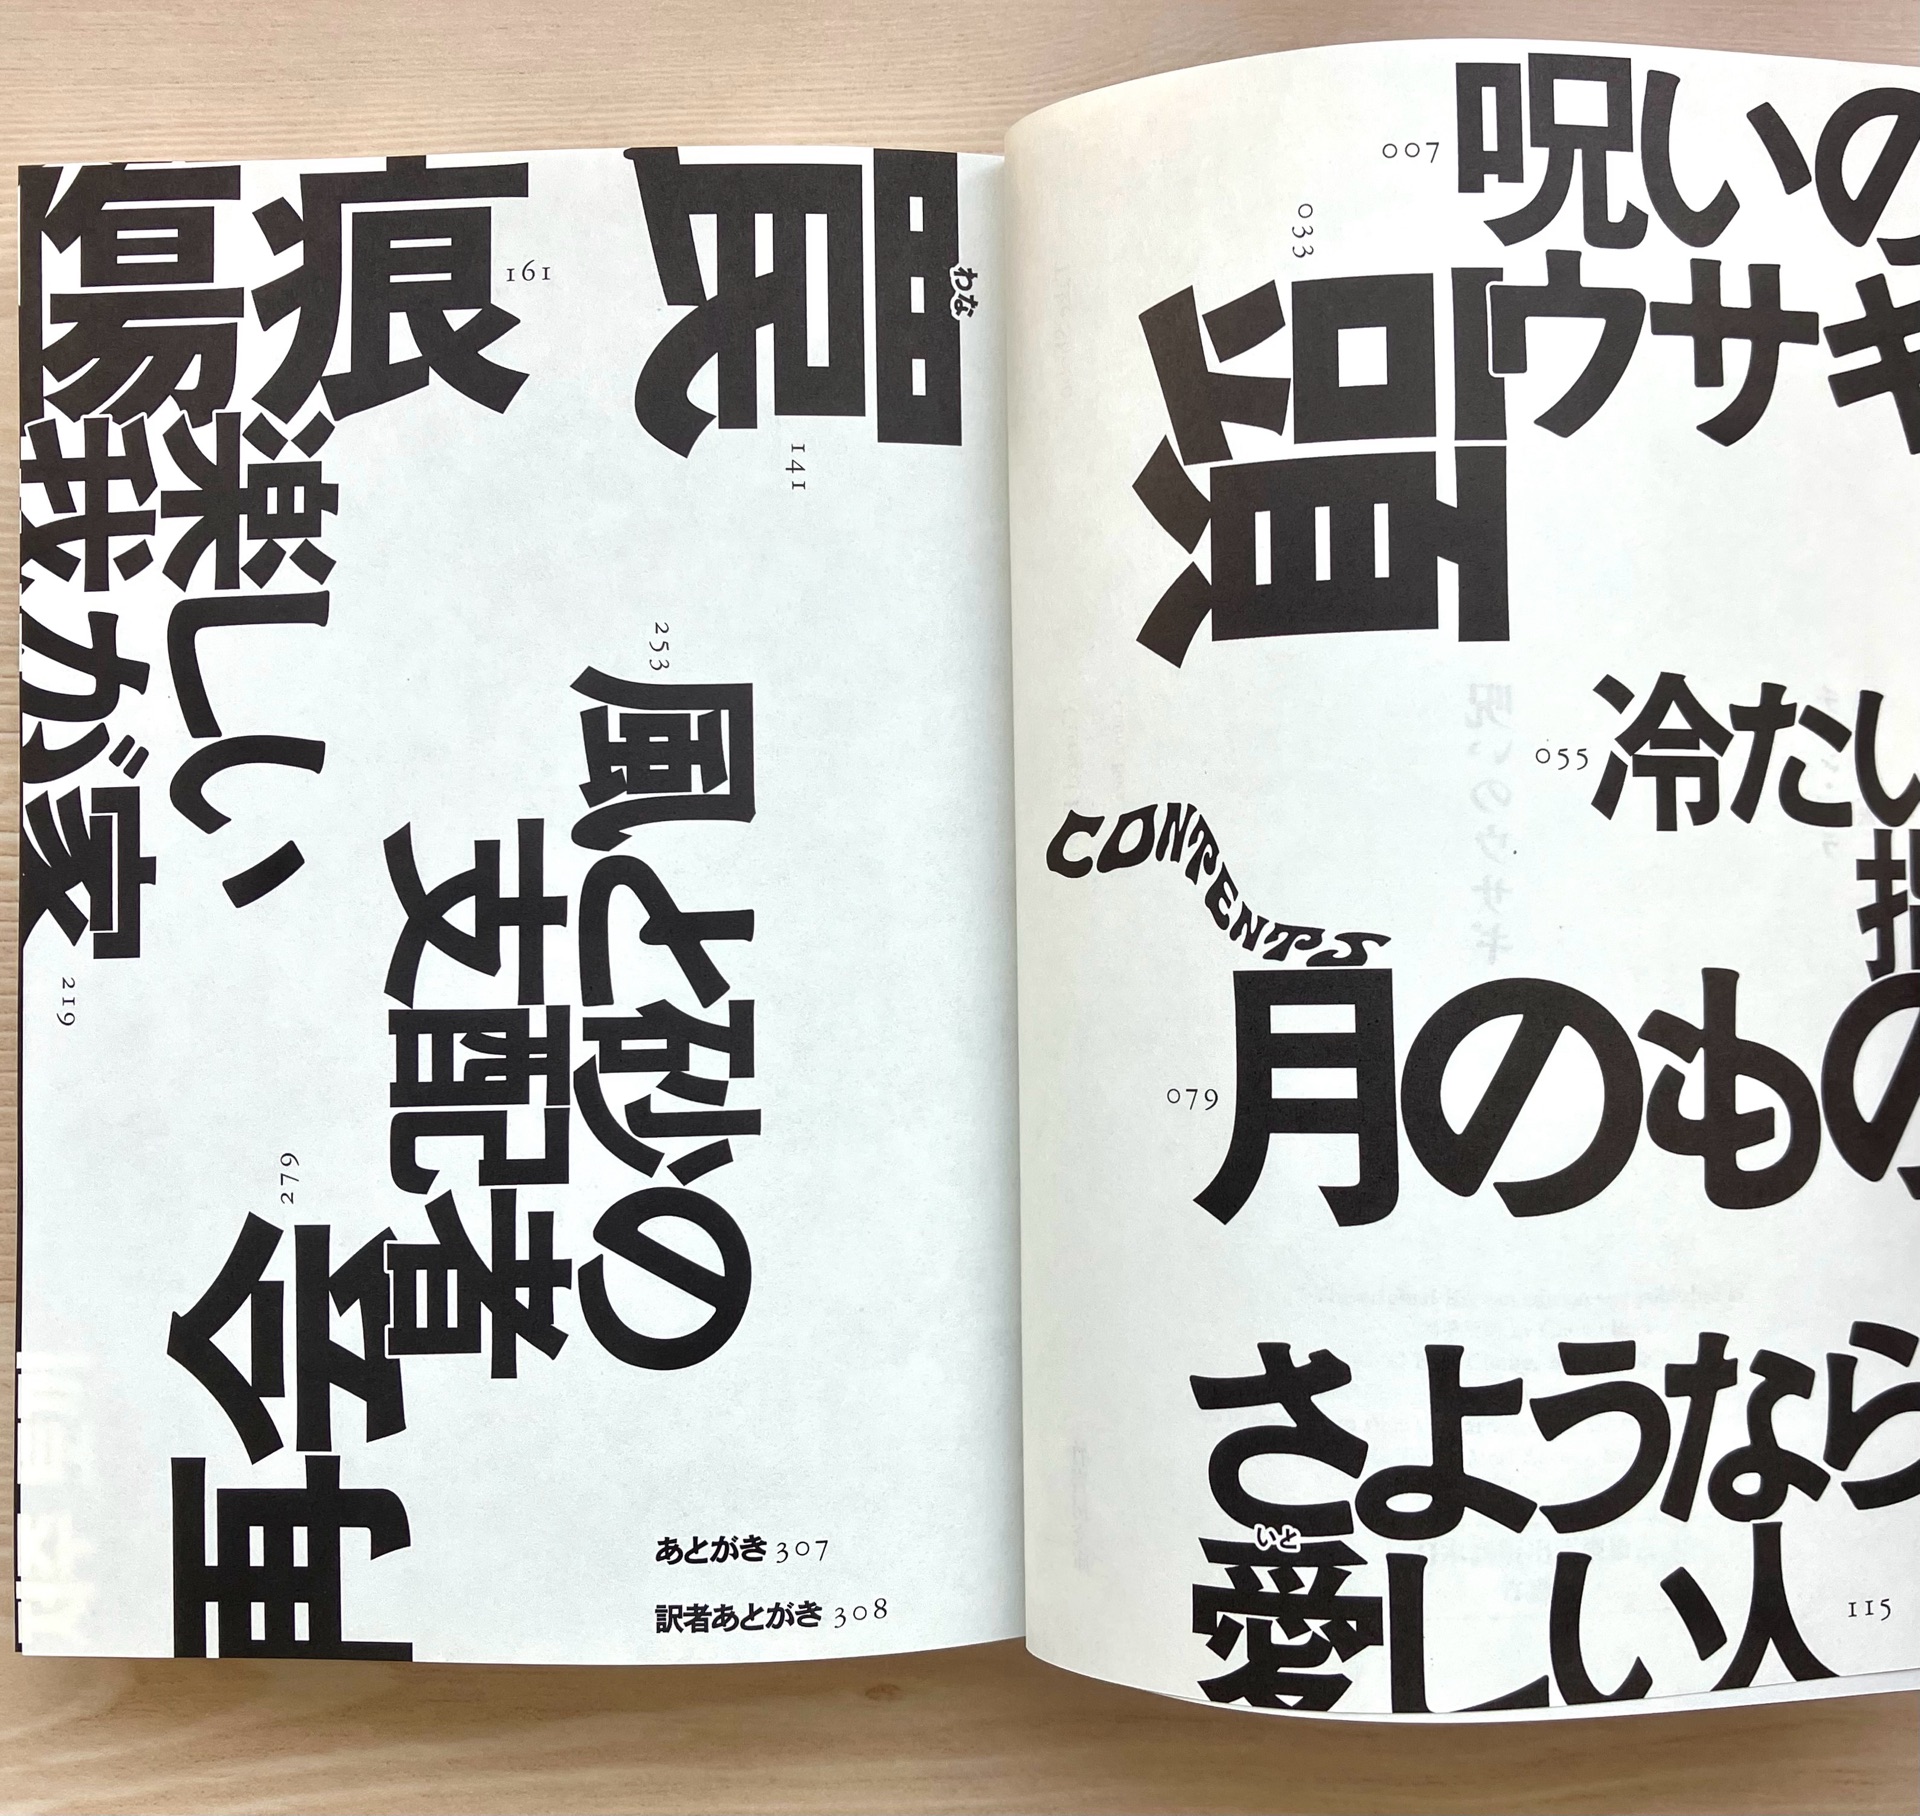 007
呪いの
ウサギ
033
頭
055
冷たい
指
CONTENTS
079
月のもの
さようなら
いと
愛しい人
115
わな
罠
141
傷痕
161
楽しい
我が家
219
253
風と砂の
支配者
279
再会
あとがき 307
訳者あとがき 308